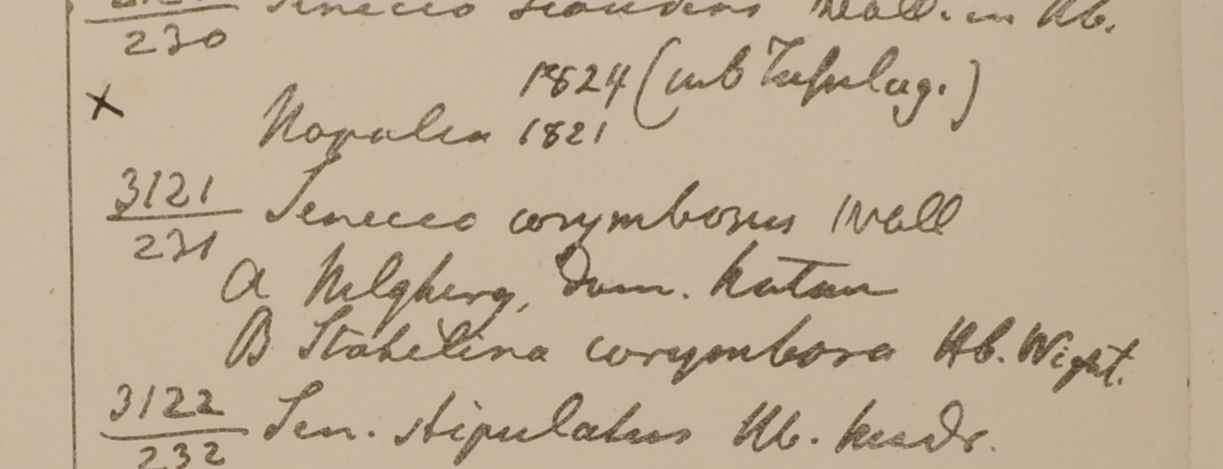 230 Senecio scandens Wall. in Hb.
1824 (sub Tussilag.)
x Napalia 1821
3121 Senecio corymbosus Wall
231
A Nilgherry, Dom. Notan
B Stahelina corymbosa Hb. Wight.
3122 Sen. stipulatus Hb. Madr.
232